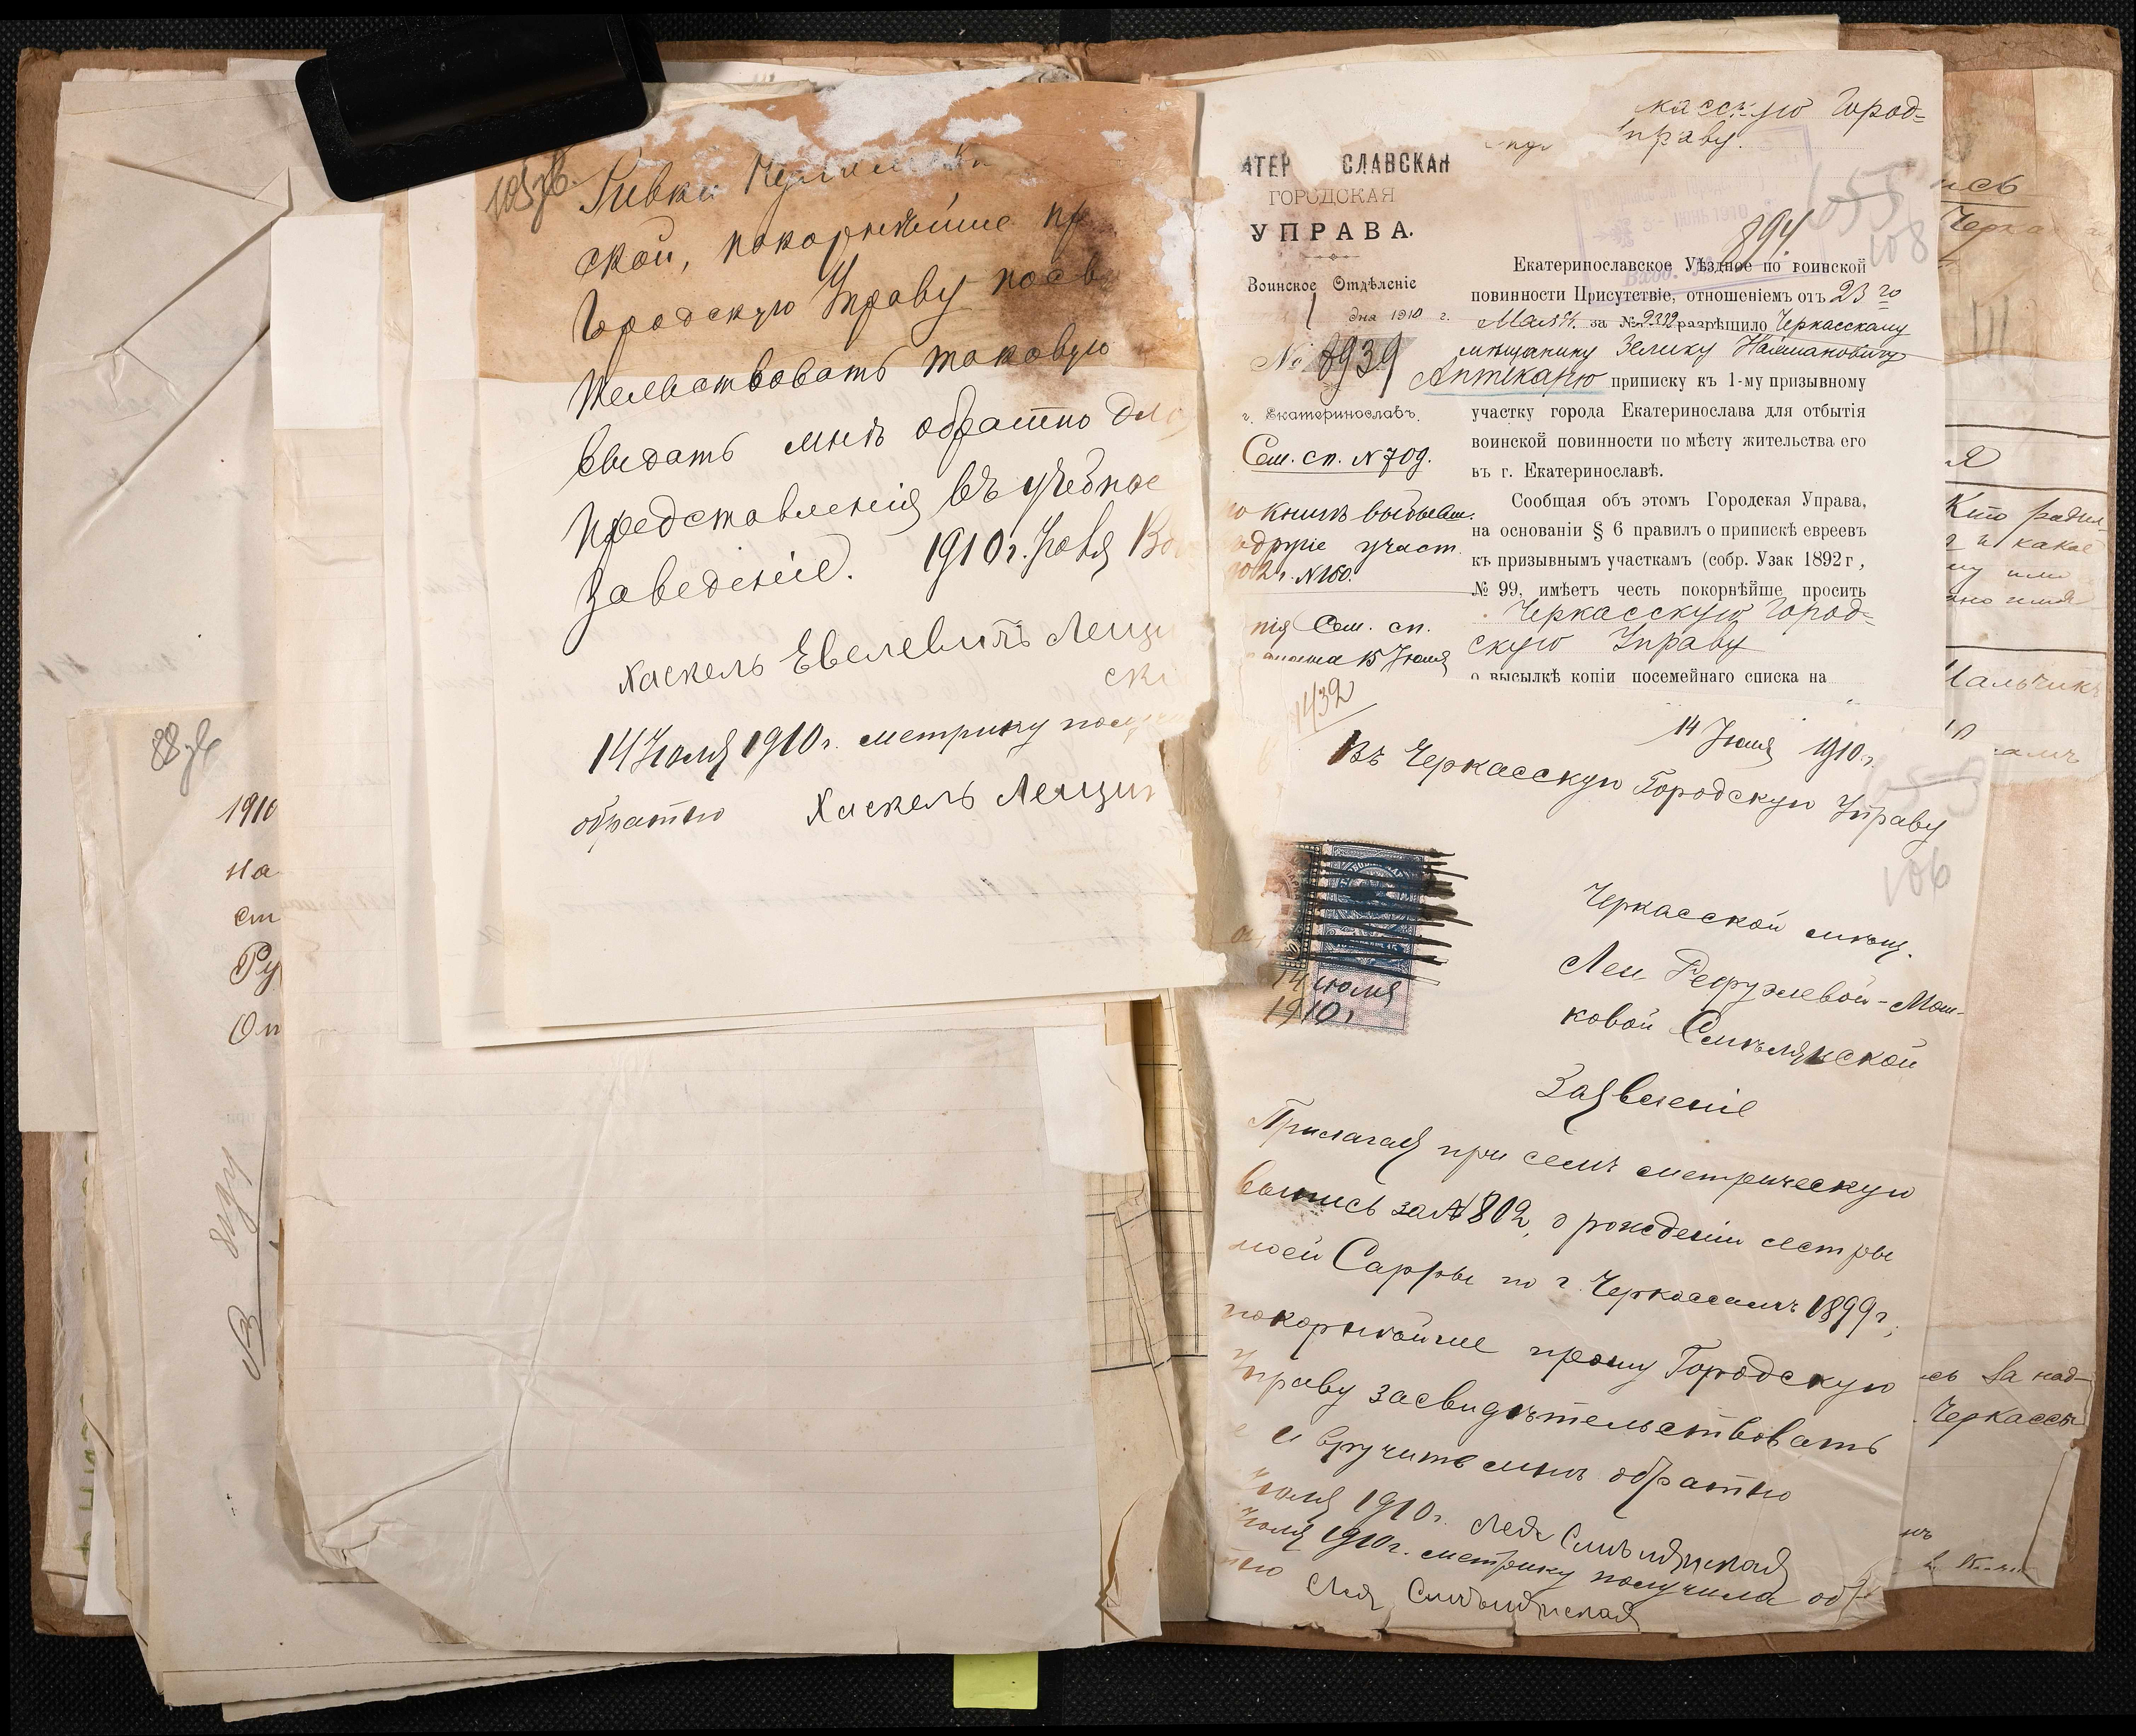 105 об
Ривки
ской, покорнѣйше пр
Городскую Управу посв
тельствовать таковую
выдать мнѣ обратно для
представленія въ учебное
заведеніе. 1910 г. Іюля
Хаскель Евелевичъ Лещи
скі
14 Іюля 1910 г. метрику полу
обратно Хаскель Лещин
88 об
1910
на
ст
Ру
От
В виду
касскую Город=
Управу.
АТЕР СЛАВСКАЯ
ГОРОДСКАЯ
УПРАВА.
Воинское Отдѣленіе
1 дня 1910 г.
№ 8939
г. Екатеринославъ.
Сем. сп. N 709.
по книгѣ выбывш.
въ другіе участ.
N 160.
нія Сем. сп.
15 Іюля
1432
894
655
108
Екатеринославское Уѣздное по воинской
повинности Присутствіе, отношеніемъ отъ 23 го
Мая с/г. за № 9332 разрѣшило Черкасскому
мѣщанину Зелику Наймановичу
Аптекарю приписку къ 1-му призывному
участку города Екатеринослава для отбытія
воинской повинности по мѣсту жительства его
въ г. Екатеринославѣ.
Сообщая объ этомъ Городская Управа,
на основаніи § 6 правилъ о припискѣ евреевъ
къ призывнымъ участкамъ (собр. Узак 1892 г,
№ 99, имѣетъ честь покорнѣйше просить
Черкасскую Город=
скую Управу
о высылкѣ копіи посемейнаго списка на
14 Іюля 1910 г.
Въ Черкасскую Городскую Управу
106
Черкасской мѣщ.
Леи Рефулевой-Мош-
ковой Смѣлянской
Заявленіе
14 июля
1910 г
Прилагая при семъ метрическую
выпись за № 802, о рожденіи сестры
моей Сарры по г. Черкассамъ 1899 г,
покорнѣйше прошу Городскую
Управу засвидѣтельствовать
е и вручить мнѣ обратно
Іюля 1910 г. Лея Смѣлянская
Іюля 1910 г. метрику получила об
тно Лея Смѣлянская
ись
Черка
я
Кто родил
и какое
му или
ано имя
Мальчикъ
Черкассы